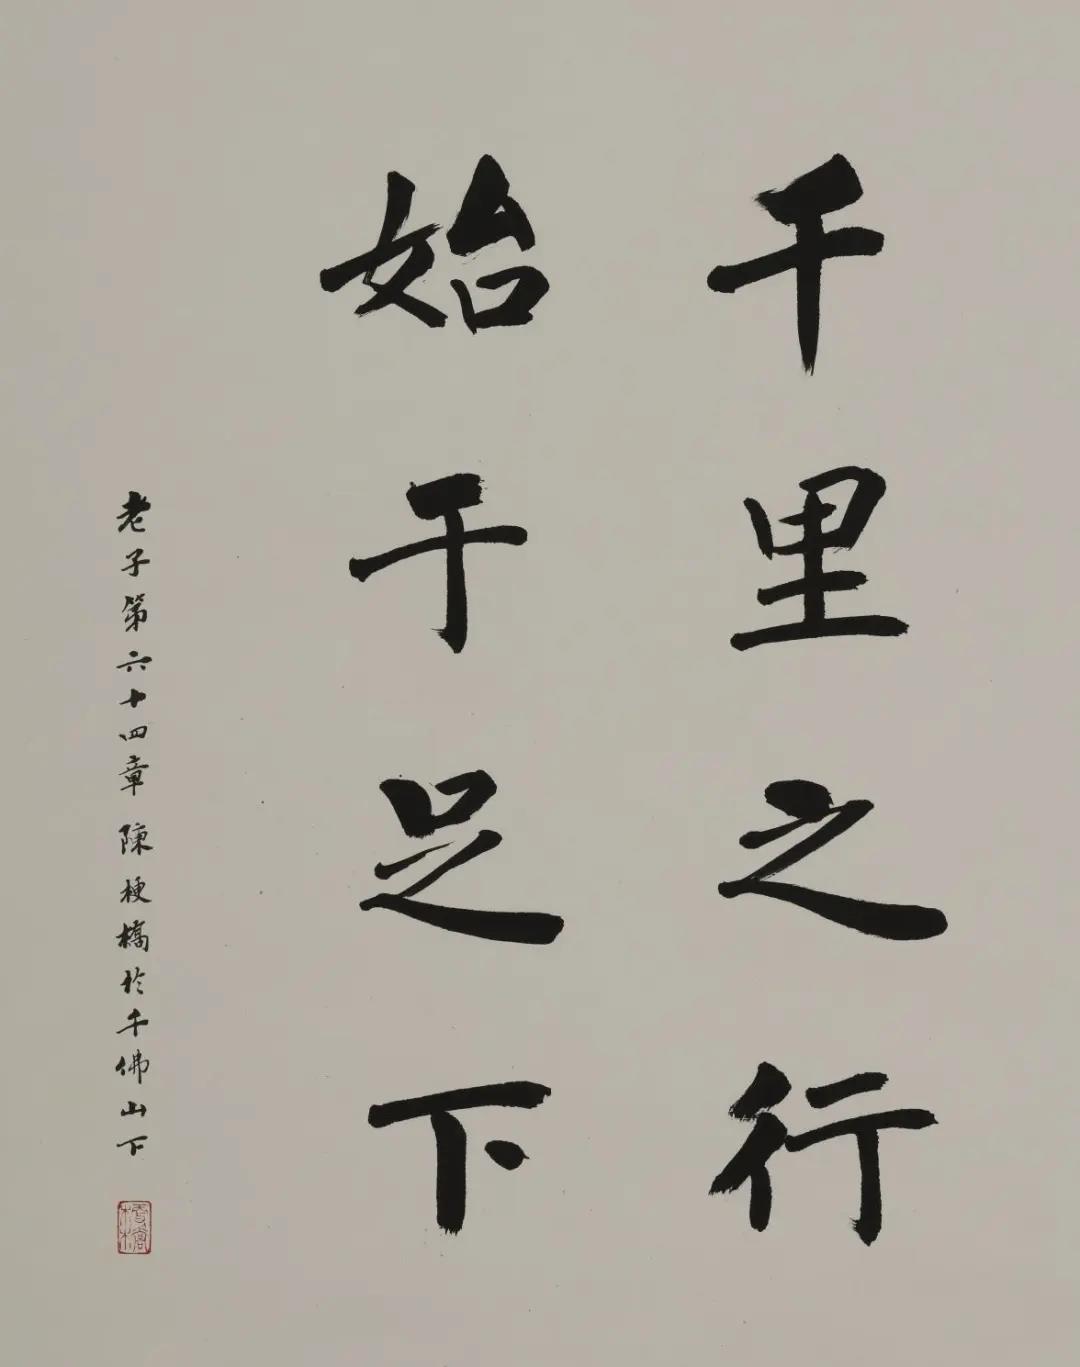 千里之行
始于足下
老子第六十四章 陳梗橋於千佛山下